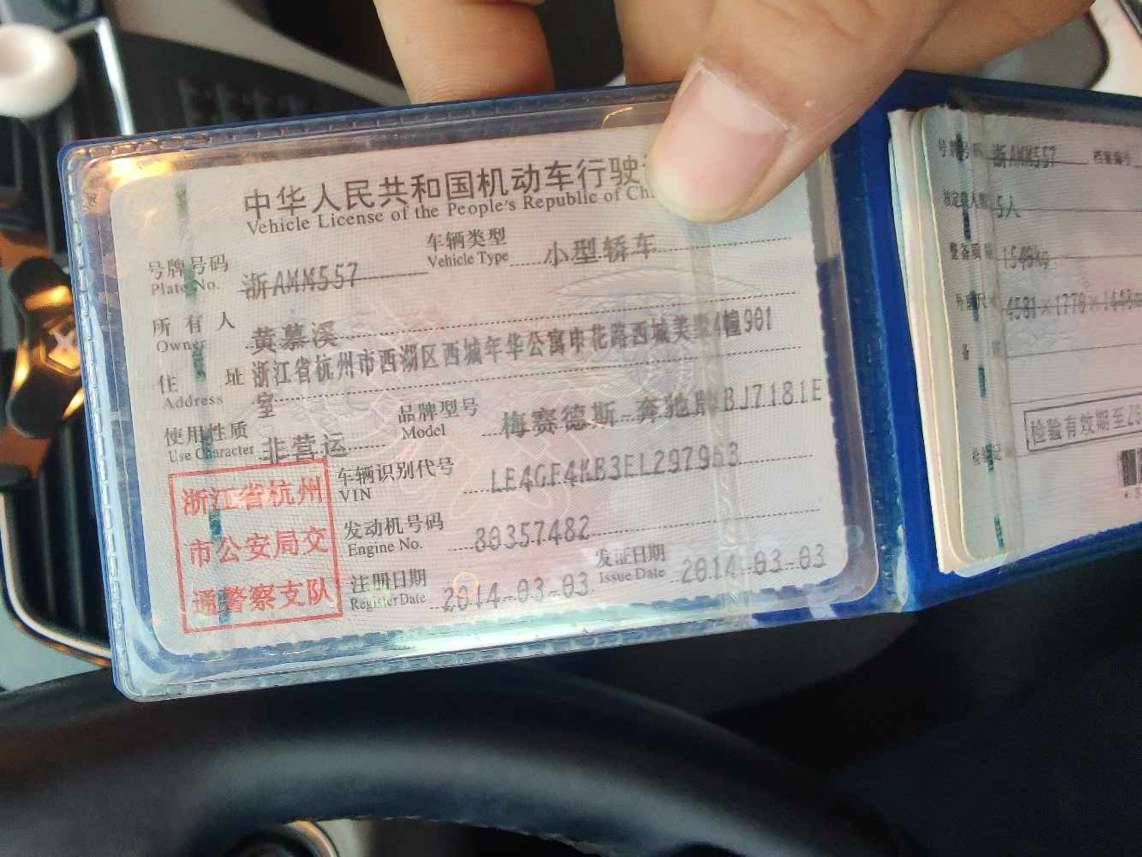 中华人民共和国机动车行驶
Vehicle License of the People's Republic of Ch
号牌号码 浙AMM557 车辆类型 小型轿车
Plate No. Vehicle Type
所有人 黄慕溪
Owner
住址 浙江省杭州市西湖区西城年华公寓申花路西城美墅4幢901
Address 室
使用性质 非营运 品牌型号 梅赛德斯-奔驰牌BJ7181E
Use Character Model
车辆识别代号 LE4GF4KB3EL297963
VIN
发动机号码 80357482
Engine No.
注册日期 2014-03-03 发证日期 2014-03-03
Register Date Issue Date
浙江省杭州
市公安局交
通警察支队
号牌号码 浙AMM557 档案编号
核定载人数 5人
整备质量
备
检验有效期至2